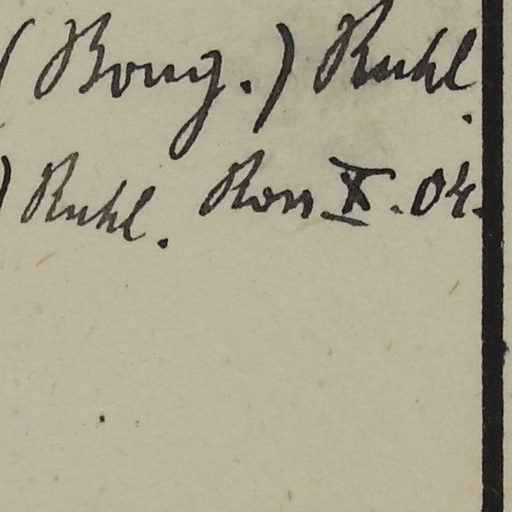 (Bong.) Ruhl.
) Ruhl. Ron X. 04.